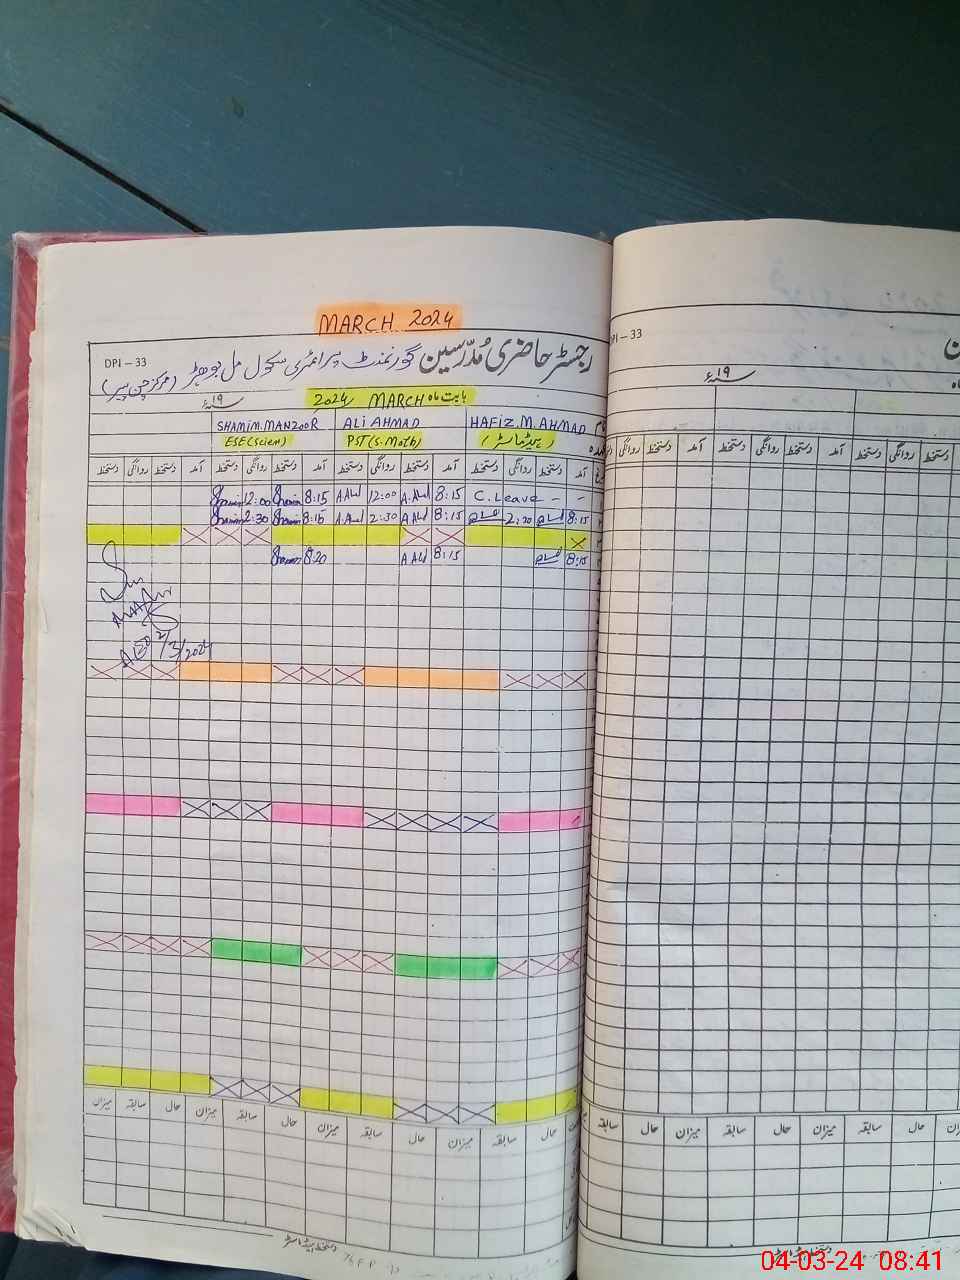 MARCH 2024
DPI - 33
رجسٹر حاضری مُدرّسین گورنمنٹ پرائمری سکول مل بوھڑ (مرکز چن پیر)
۱۹ سنہء
بابت ماہ MARCH 2024ء
SHAMIM.MANZOOR ALI AHMAD HAFIZ.M.AHMAD
ESE(Scien) PST(S.Math) (ہیڈماسٹر)
آمد دستخط روانگی دستخط آمد دستخط روانگی دستخط آمد دستخط روانگی دستخط آمد دستخط روانگی دستخط
Shamim 12:00 Shamim 8:15 A.Ahd 12:00 A.Ahd 8:15 C.Leave - -
Shamim 2:30 Shamim 8:15 A.Ahd 2:30 A.Ahd 8:15 2:30 8:15
Shamim 8:20 A Ahd 8:15 8:15
AEO 2/3/2024
میزان سابقہ حال میزان سابقہ حال میزان سابقہ حال میزان سابقہ حال
دستخط ہیڈ ماسٹر
DPI - 33
۱۹ سنہء
روانگی دستخط آمد دستخط روانگی دستخط آمد دستخط روانگی دستخط
سابقہ حال میزان سابقہ حال میزان سابقہ حال میزان
دستخط ہیڈ ماسٹر
04-03-24 08:41